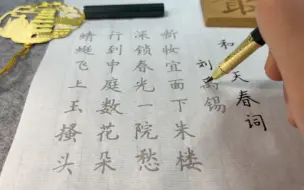 和天春词
刘禹锡
新妆宜面下朱楼
深锁春光一院愁
行到中庭数花朵
蜻蜓飞上玉搔头